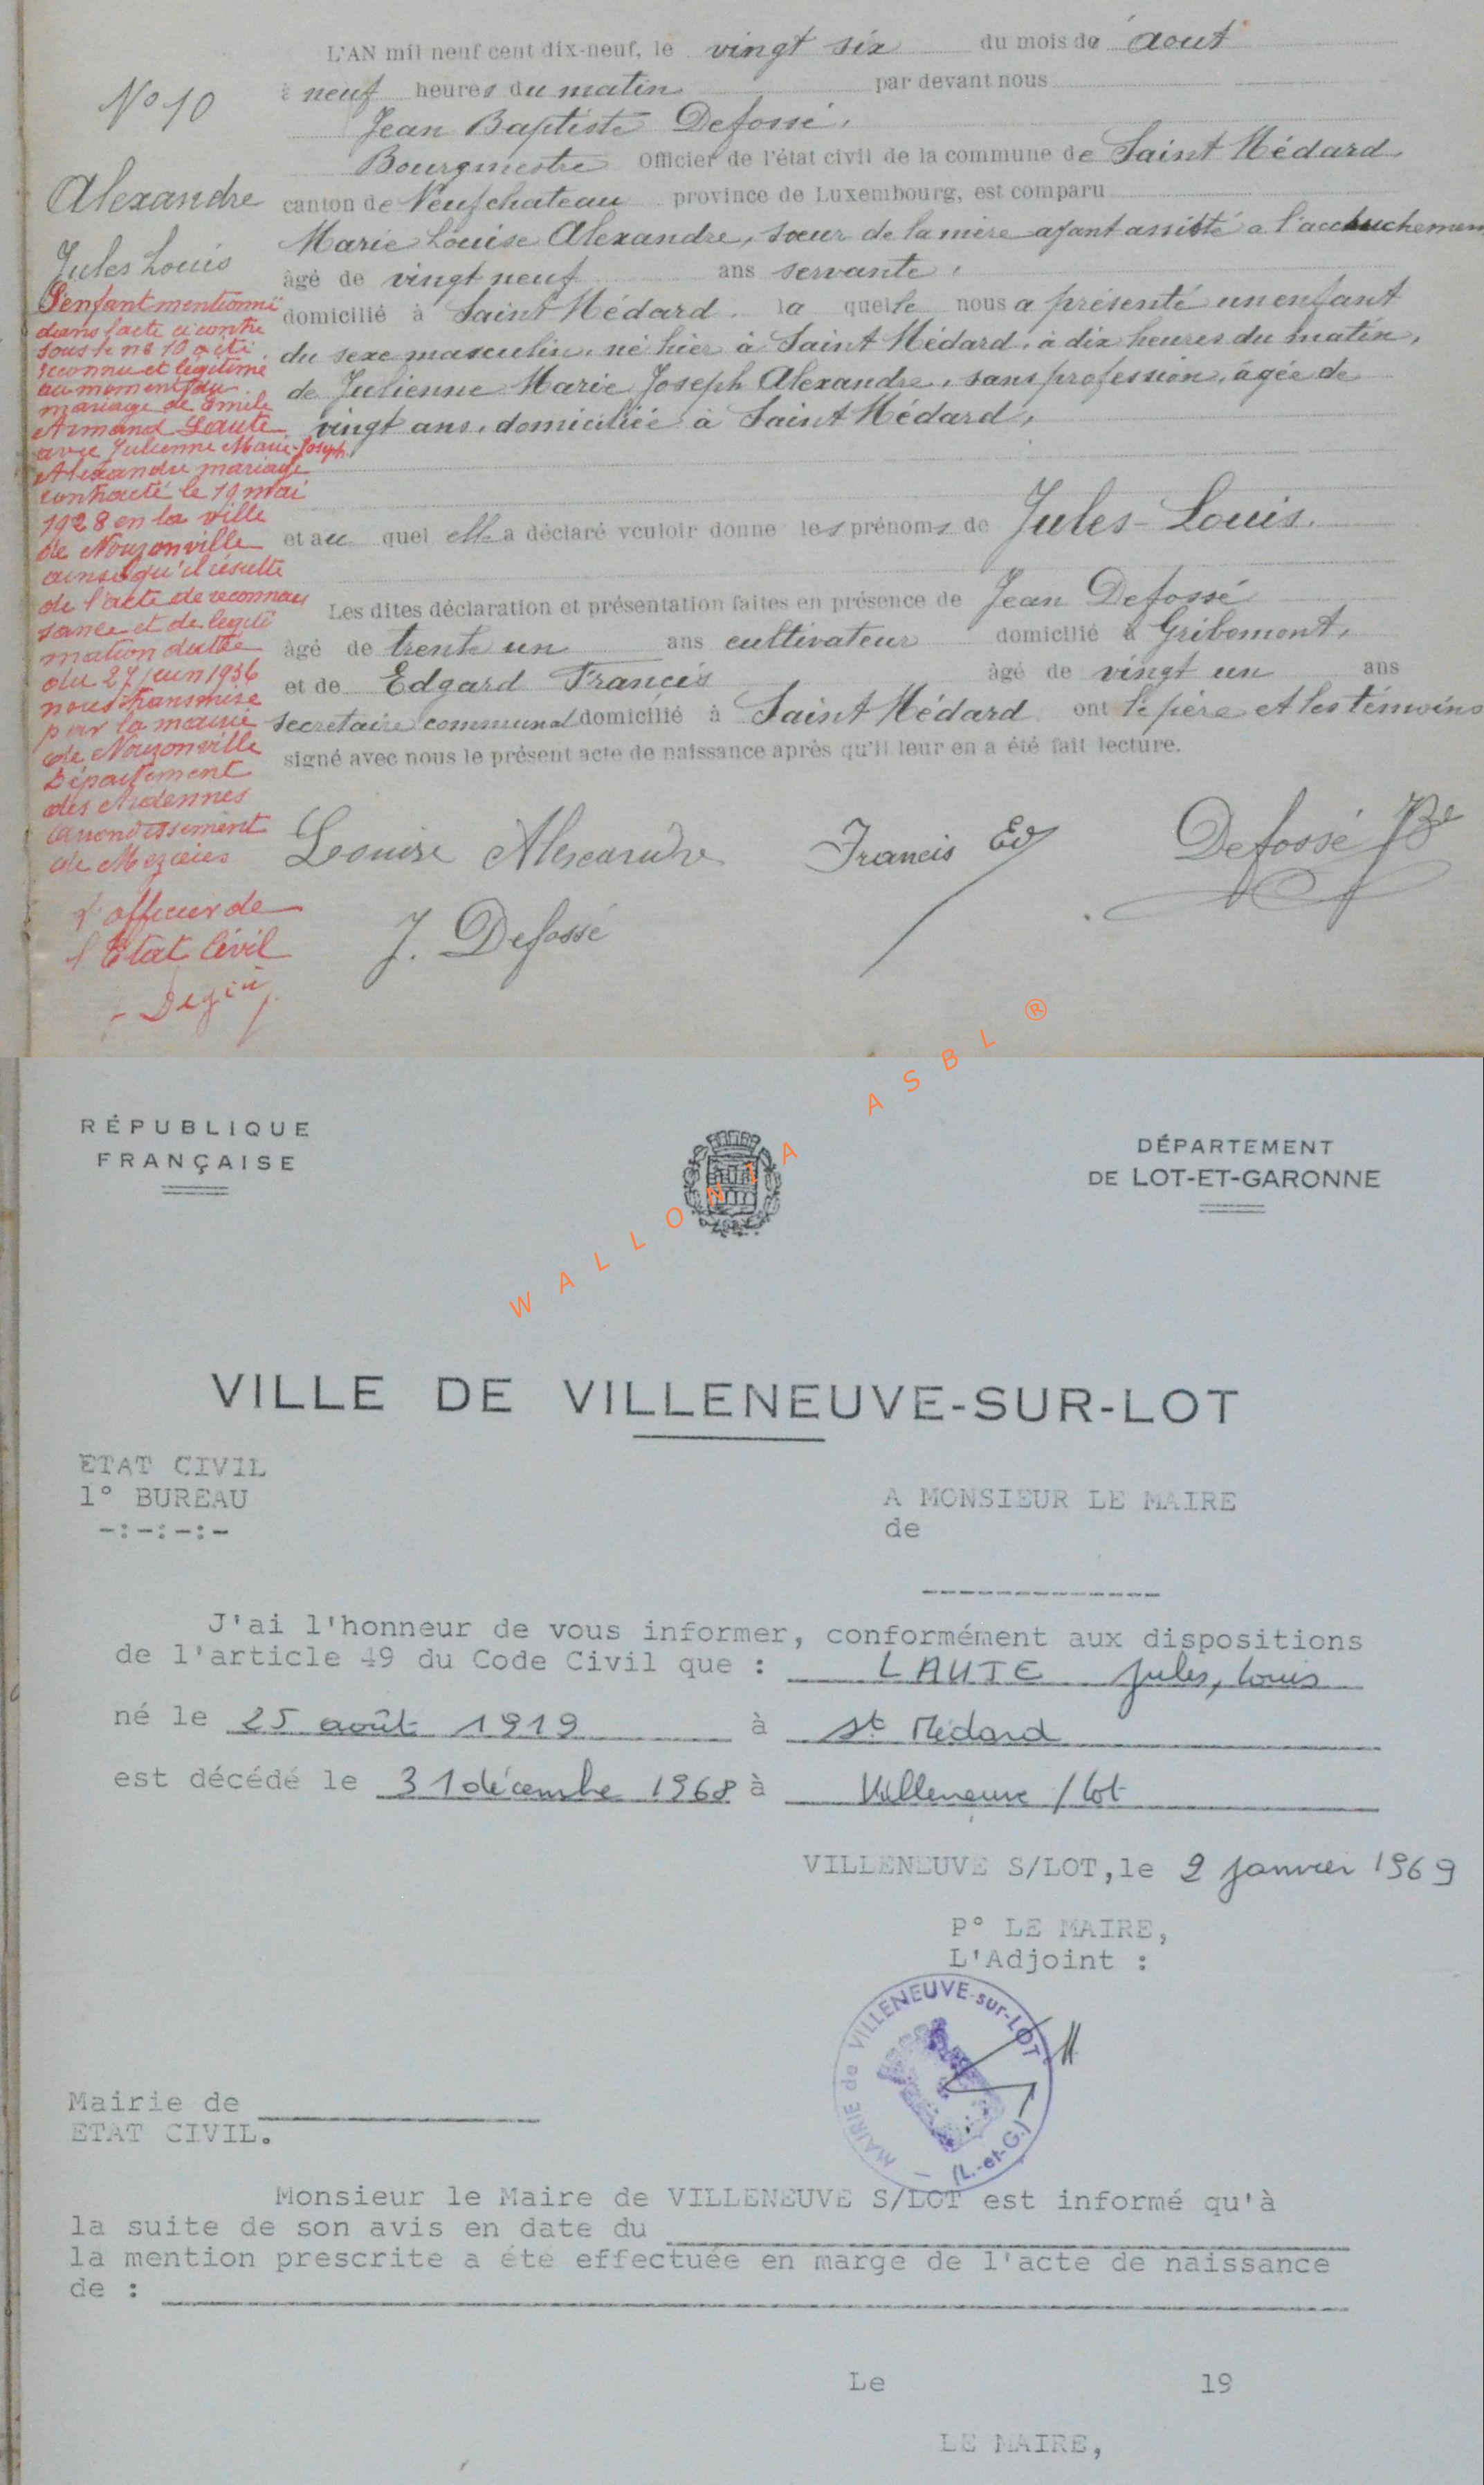 L'AN mil neuf cent dix-neuf, le vingt six du mois de aout
à neuf heures du matin par devant nous
Jean Baptiste Defossé,
Bourgmestre Officier de l'état civil de la commune de Saint Médard,
canton de Neufchateau province de Luxembourg, est comparu
Marie Louise Alexandre, sœur de la mère ayant assisté a l'accouchement
âgé de vingt neuf ans servante,
domicilié à Saint Médard, la quelle nous a présenté un enfant
du sexe masculin, né hier à Saint Médard, à dix heures du matin,
de Julienne Marie Joseph Alexandre, sans profession, agée de
vingt ans, domiciliée à Saint Médard,
et au quel elle a déclaré vouloir donne les prénoms de Jules-Louis.
Les dites déclaration et présentation faites en présence de Jean Defossé
âgé de trente un ans cultivateur domicilié à Gribomont,
et de Edgard Francis âgé de vingt un ans
secretaire communal domicilié à Saint Médard ont le père et les témoins
signé avec nous le présent acte de naissance après qu'il leur en a été fait lecture.
Louise Alexandre Francis Ed Defossé JBe
J. Defossé
No 10
Alexandre
Jules Louis
L'enfant mentionné
dans l'acte ci contre
sous le no 10 a été
reconnu et légitimé
au moment du
mariage de Emile
Armand Laute
avec Julienne Marie-Joseph
Alexandre mariage
contracté le 19 mai
1928 en la ville
de Nouzonville
ainsi qu'il résulte
de l'acte de reconnais
sance et de légiti
mation dattée
du 27 juin 1936
nous transmise
par la mairie
de Nouzonville
Département
des Ardennes
Arrondissement
de Mezieres
L'officier de
l'Etat Civil
WALLONIA ASBL ®
RÉPUBLIQUE
FRANÇAISE
DÉPARTEMENT
DE LOT-ET-GARONNE
VILLE DE VILLENEUVE-SUR-LOT
ETAT CIVIL
1° BUREAU
-:-:-:-
A MONSIEUR LE MAIRE
de
J'ai l'honneur de vous informer, conformément aux dispositions
de l'article 49 du Code Civil que : LAUTE Jules, Louis
né le 25 août 1919 à St Médard
est décédé le 31 décembre 1968 à Villeneuve / Lot
VILLENEUVE S/LOT, le 2 janvier 1969
P° LE MAIRE,
L'Adjoint :
MAIRIE de VILLENEUVE-sur-LOT (L.-et-G.)
Mairie de
ETAT CIVIL.
Monsieur le Maire de VILLENEUVE S/LOT est informé qu'à
la suite de son avis en date du
la mention prescrite a été effectuée en marge de l'acte de naissance
de :
Le 19
LE MAIRE,